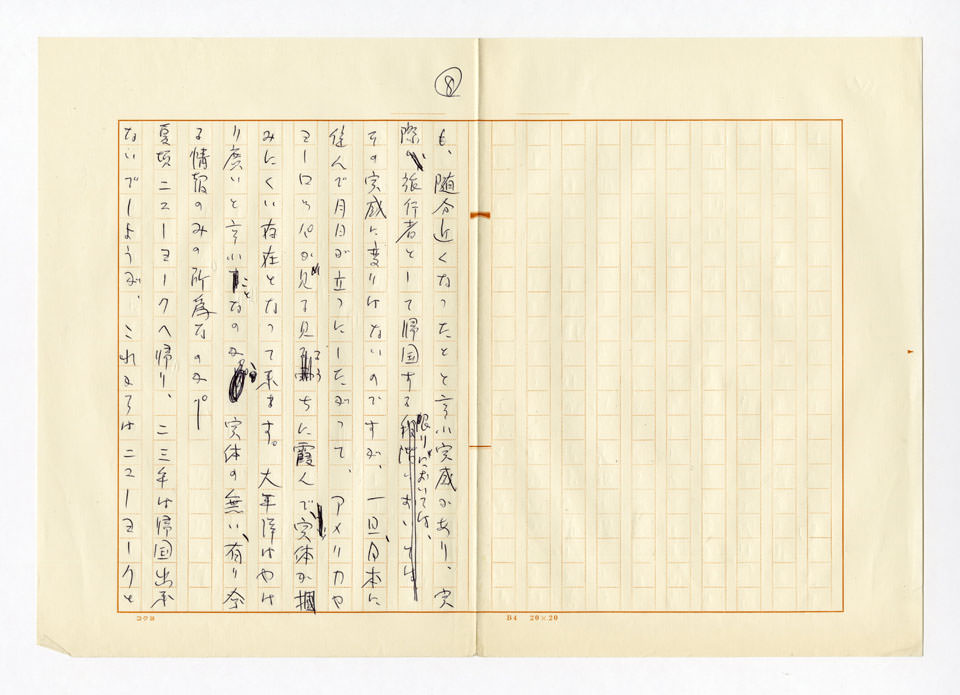 ⑧
も、随分近くなったとと言ふ実感があり、実
際の旅行者として帰国する限りにおいては、
その実感に変りはないのですが、一旦、日本に
住んで月日が立つにしたがって、アメリカや
ヨーロッパが見る見るうちに霞んで、実体が掴
みにくい存在となって来ます。大平洋はやは
り広いと言ふことなのか、実体の無い、有り余
る情報のみの所為なのか。
夏頃ニューヨークへ帰り、二三年は帰国出来
ないでしようが、これからはニューヨークと
コクヨ
B4 20×20